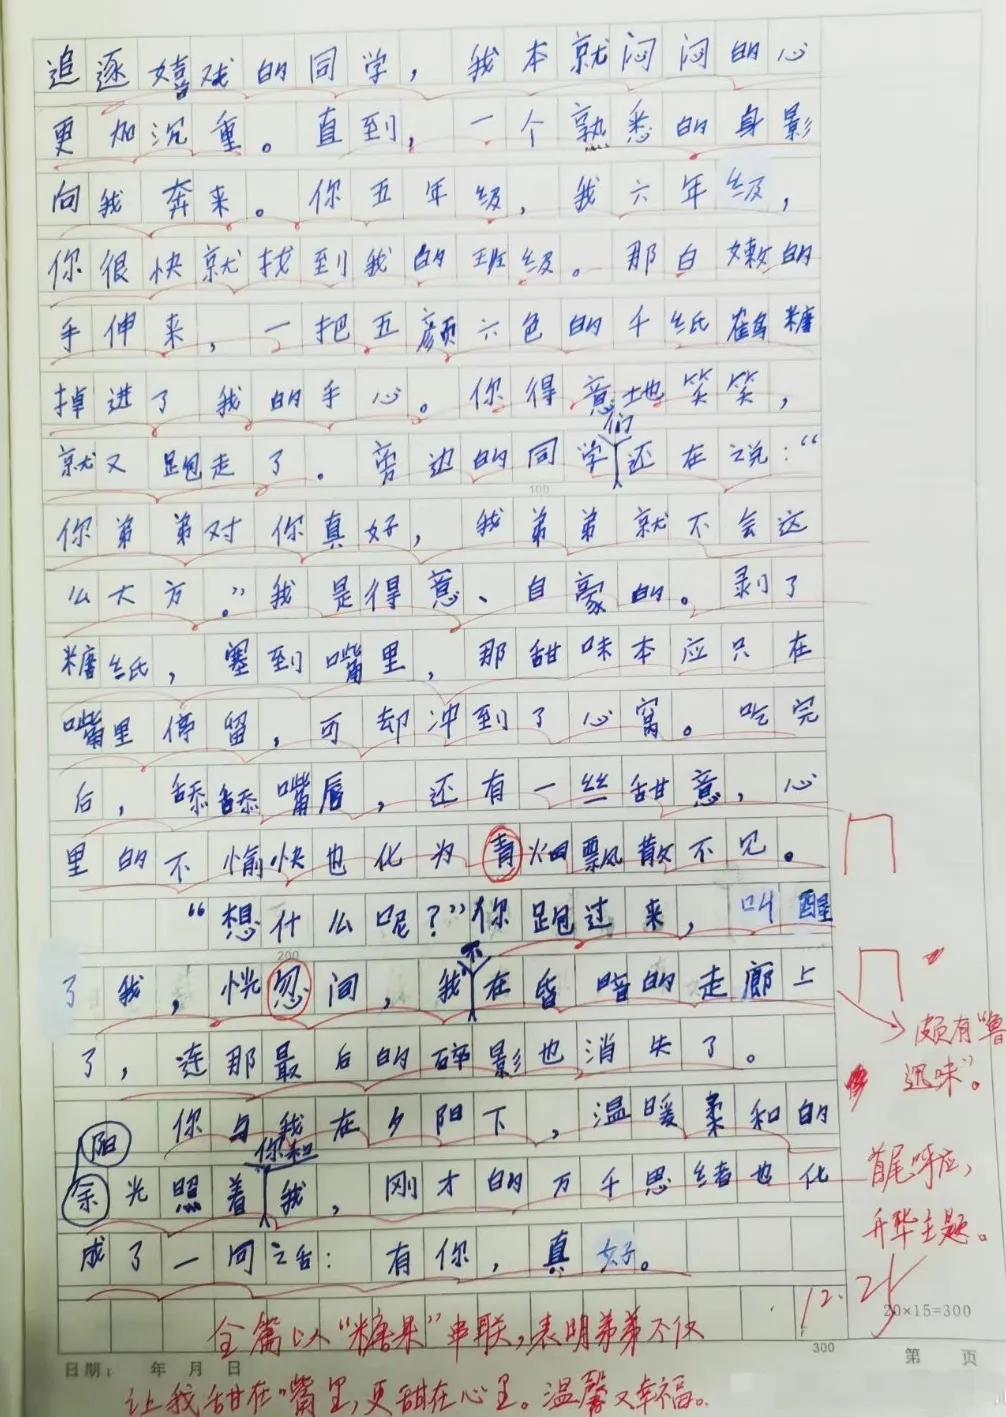 追逐嬉戏的同学，我本就闷闷的心
更加沉重。直到，一个熟悉的身影
向我奔来。你五年级，我六年级，
你很快就找到我的班级。那白嫩的
手伸来，一把五颜六色的千纸鹤糖
掉进了我的手心。你得意地笑笑，
们
就又跑走了。旁边的同学还在说：“
100
你弟弟对你真好，我弟弟就不会这
么大方。”我是得意、自豪的。剥了
糖纸，塞到嘴里，那甜味本应只在
嘴里停留，可却冲到了心窝。吃完
后，舔舔嘴唇，还有一丝甜意，心
里的不愉快也化为青烟飘散不见。
“想什么呢？”你跑过来，叫醒
200
不
了我，恍忽间，我在昏暗的走廊上
颇有“鲁
迅味”。
了，连那最后的碎影也消失了。
阳
你与我在夕阳下，温暖柔和的
你和
余光照着我，刚才的万千思绪也化
首尾呼应，
升华主题。
成了一句话：有你，真好。
12.25
20×15=300
全篇以“糖果”串联，表明弟弟不仅
300
日期： 年 月 日
第 页
让我甜在嘴里，更甜在心里。温馨又幸福。